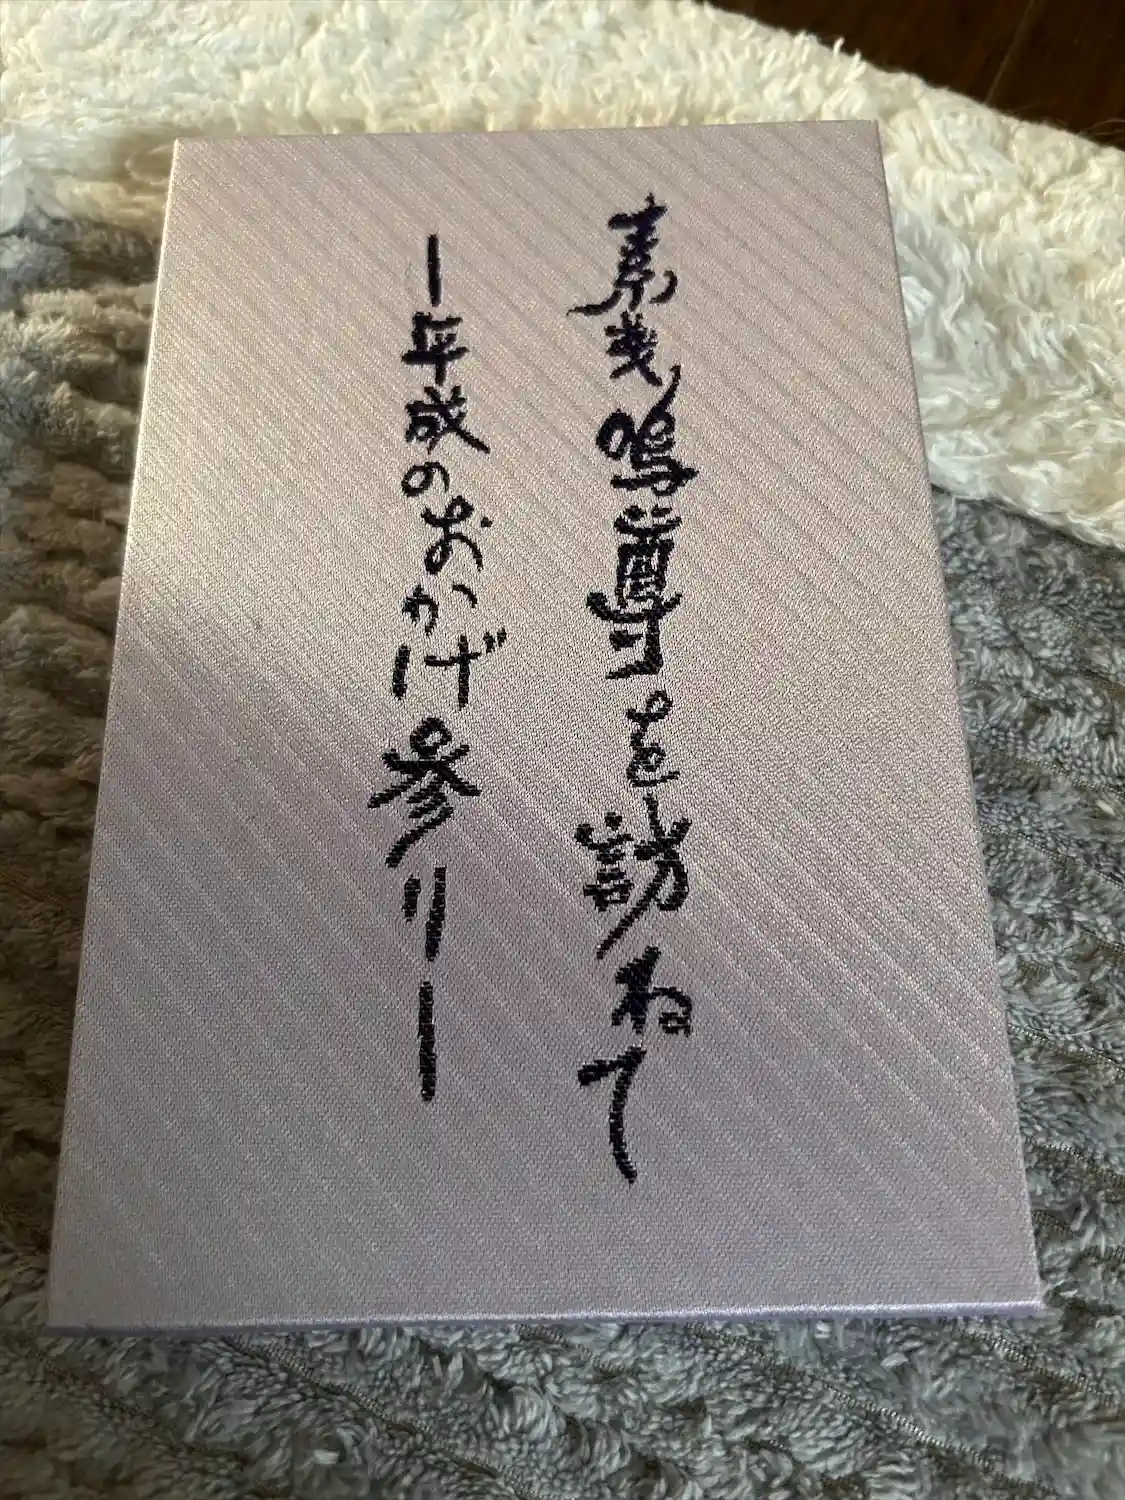 素戔嗚尊を訪ねて
ー平成のおかげ参りー